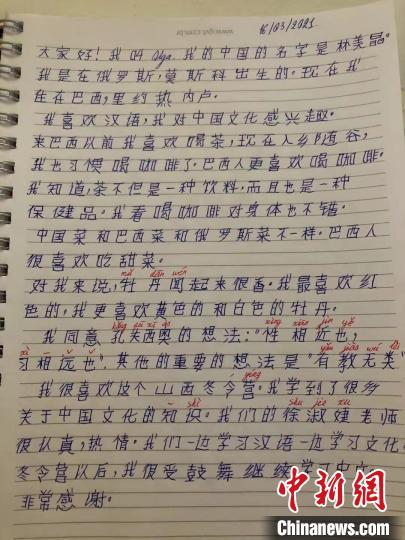 www.gvt.com.br
16/03/2021
大家好!我叫 Olga. 我的中国的名字是林美晶。
我是在俄罗斯,莫斯科出生的.现在我
住在巴西,里约热内卢.
我喜欢汉语,我对中国文化感兴趣.
来巴西以前我喜欢喝茶,现在入乡随俗,
我也习惯喝咖啡了.巴西人更喜欢喝咖啡.
我知道,茶不但是一种饮料,而且也是一种
保健品。我看喝咖啡对身体也不错。
中国菜和巴西菜和俄罗斯菜不一样.巴西人
很喜欢吃甜菜。
mǔ dān wén
对我来说,牡丹闻起来很香。我最喜欢红
色的,我更喜欢黄色的和白色的牡丹.
xìng xiāng jìn yě
我同意 的想法:"性相近也,
习相远也".其他的重要的想法是"有教无类"
我很喜欢这个山西冬令营。我学到了很多
关于中国文化的知识。我们的徐淑娃老师
很认真,热情.我们一边学习汉语一边学习文化
冬令营以后,我很受鼓舞继续学习中文.
非常感谢。
中新网
Chinanews.com